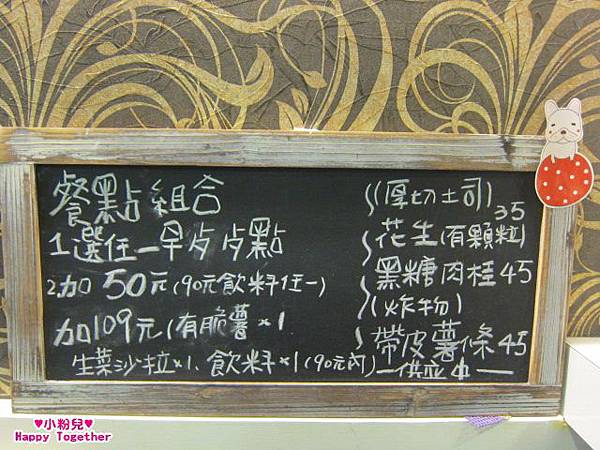 餐點組合
1選任一早ㄕ ㄕ點
2加50元(90元飲料任一)
加109元(有脆薯×1
生菜沙拉×1、飲料×1(90元內)
(厚切土司)
花生(有顆粒) 35
黑糖肉桂45
(炸物)
帶皮薯條45
一供应中一
♥小粉兒♥
Happy Together